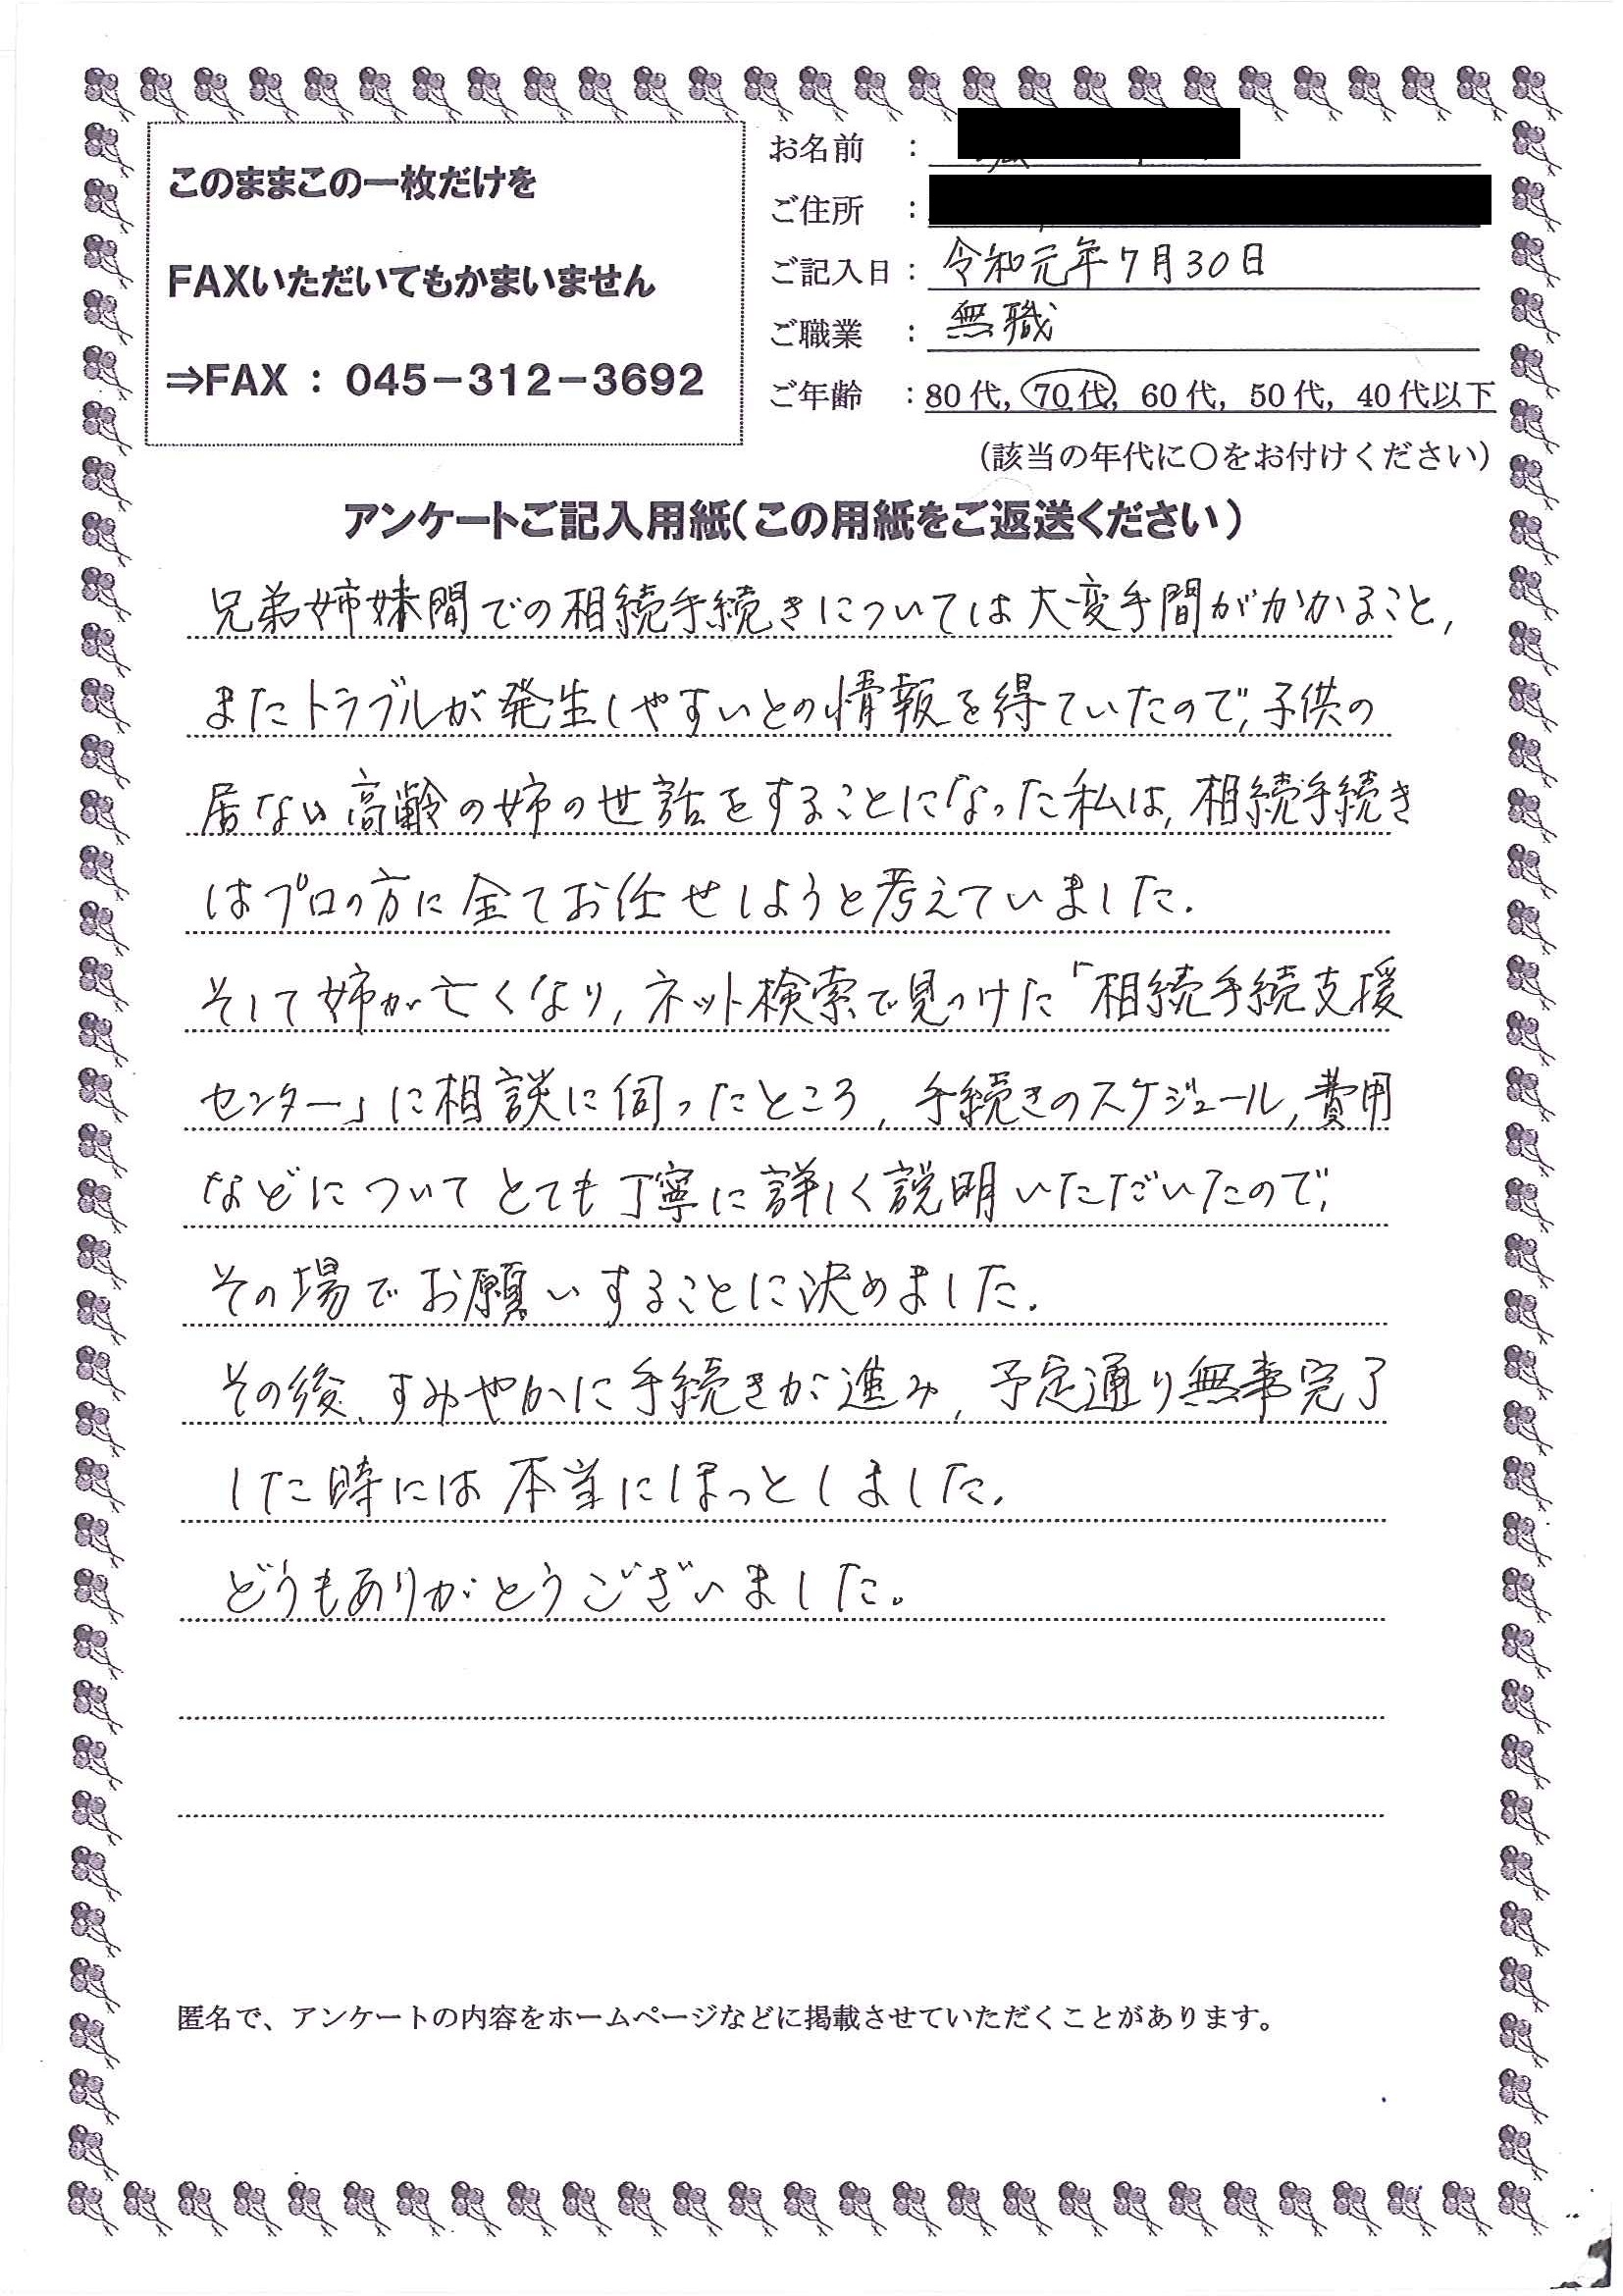 このままこの一枚だけを
FAXいただいてもかまいません
⇒FAX : 045-312-3692
お名前 :
ご住所 :
ご記入日 : 令和元年7月30日
ご職業 : 無職
ご年齢 : 80代, 70代, 60代, 50代, 40代以下
(該当の年代に○をお付けください)
アンケートご記入用紙(この用紙をご返送ください)
兄弟姉妹間での相続手続きについては大変手間がかかること,
またトラブルが発生しやすいとの情報を得ていたので,子供の
居ない高齢の姉の世話をすることになった私は,相続手続き
はプロの方に全てお任せしようと考えていました.
そして姉が亡くなり,ネット検索で見つけた「相続手続支援
センター」に相談に伺ったところ,手続きのスケジュール,費用
などについてとても丁寧に詳しく説明いただいたので,
その場でお願いすることに決めました.
その後,すみやかに手続きが進み,予定通り無事完了
した時には本当にほっとしました.
どうもありがとうございました。
匿名で、アンケートの内容をホームページなどに掲載させていただくことがあります。